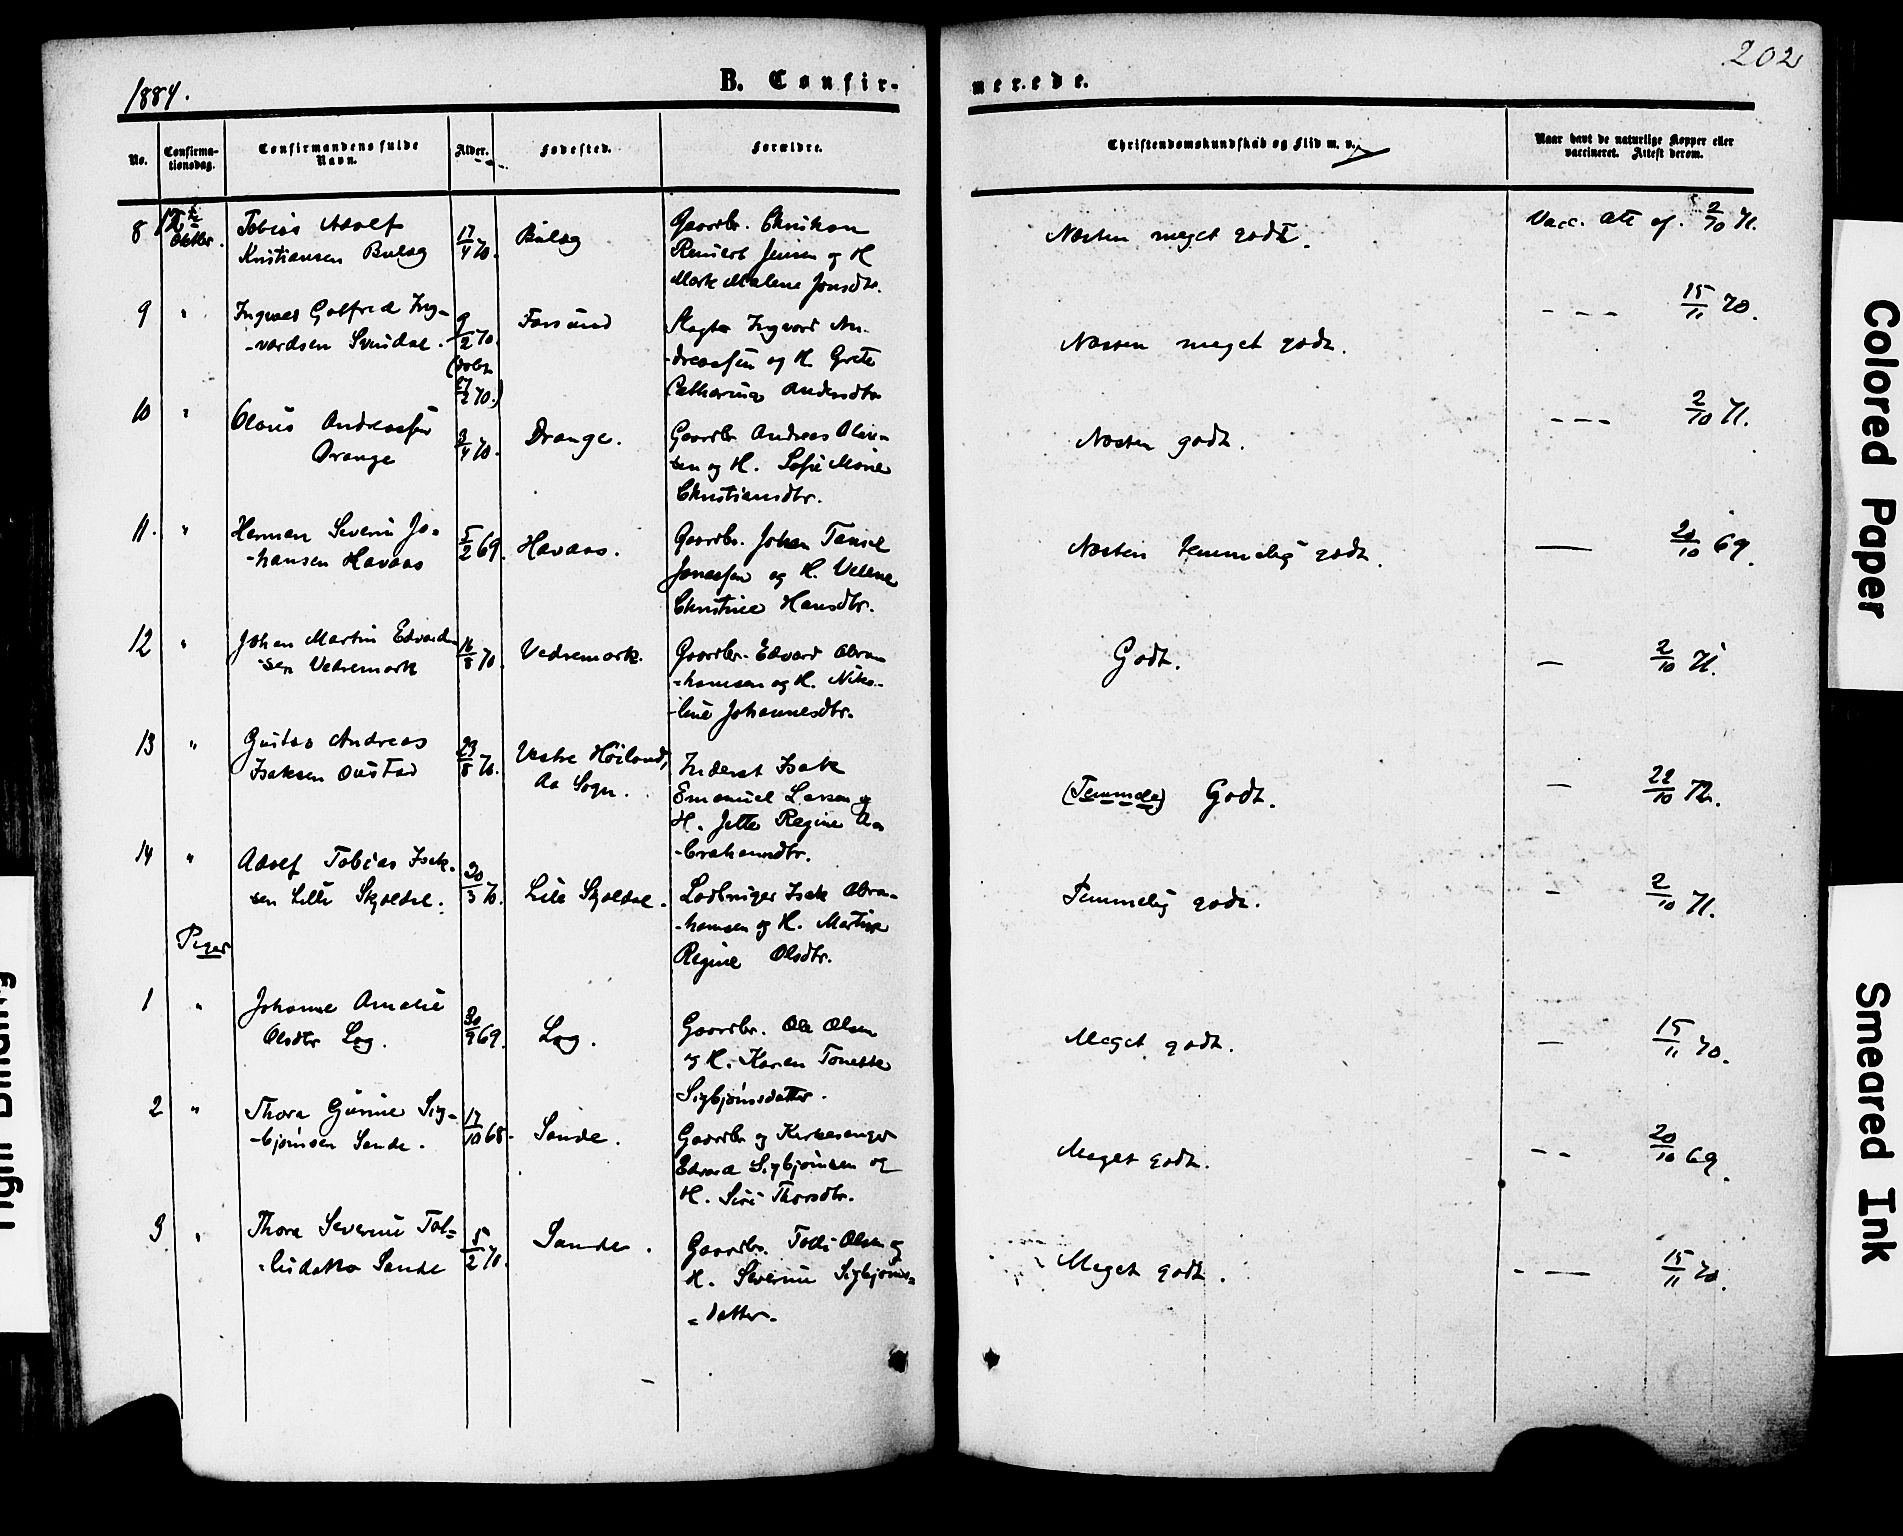 202
1884.
B. Confir-
merede.
No.
Confirma-
tionsdag.
Confirmandens fulde
Navn.
Alder.
Fødested.
Forældre.
Christendomskundskab og Flid m. v.
Naar havt de naturlige Kopper eller
vaccineret. Attest derom.
8
12te
Oktbr.
Tobias Adolf
Kristiansen Bulæg
17/4 70.
Bulæg
Gaardbr. Christian
Jensen og H
Malene Jonsdtr.
Næsten meget godt.
Vacc. att. af. 2/10 71.
9
"
Ingvald Golfred Ing-
-vardsen Svindal.
9/2 70.
(døbt
27/2 70.)
Farsund
Slagter Ingvard An-
-dreassen og H. Grete
Catharina Andersdtr
Næsten meget godt.
- - - - 15/11 70.
10
"
Olaus Andreassen
Drange
3/4 70.
Drange.
Gaardbr Andreas Olau-
sen og H. Sofie Marie
Christiansdtr.
Næsten godt.
- - - 2/10 71.
11.
"
Herman Severin Jo-
-hansen Havaas
5/2 69.
Havaas.
Gaardbr. Johan Daniel
Jonassen og H. Velene
Christine Hansdtr.
Næsten temmelig godt.
— 20/10 69.
12
"
Johan Martin Edvard-
sen Vedremark
16/8 70.
Vedremark.
Gaardbr. Edvard Abra-
-hamsen og H. Niko-
-line Johannesdtr.
Godt.
— 2/10 71.
13
"
Gustav Andreas
Isaksen Oustad
23/8 70.
Vestre Høiland,
Aa Sogn.
Inderst Isak
Emanuel Larsen og
H. Jette Regine Aa
-brahamsdtr.
(Temmelig) Godt.
— 22/10 72.
14
"
Adolf Tobias Isak-
sen Lille Skjoldal.
20/3 70.
Lille Skjoldal.
Isak Abra-
-hamsen og H. Martine
Regine Olsdtr.
Temmelig godt.
- 2/10 71.
Piger
1
"
Johanne Amalie
Olsdtr Log.
30/9 69.
Log.
Gaardbr. Ole Olsen
og H. Karen Tonette
Sigbjørnsdatter.
Meget godt.
— 15/11 70.
2
"
Thora Gurine Sig-
-bjørnsen Sande.
17/10 68.
Sande.
Gaardbr og Kirkesanger
Edvard Sigbjørnsen og
H. Siri Thorsdtr.
Meget godt.
- - 20/10 69.
3
"
Thora Severine Tol-
-lisdatter Sande
5/2 70.
Sande.
Gaardbr. Tolli Olsen og
H. Severine Sigbjørns-
-datter.
Meget godt.
- — 15/11 70.
Colored Paper
Smeared Ink
Tight Binding